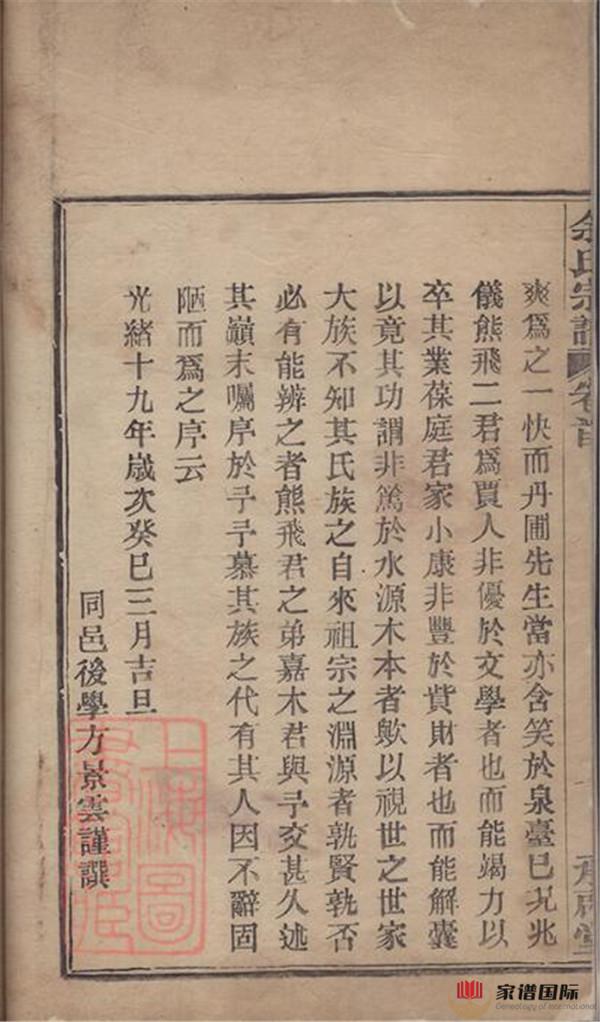 余氏宗譜 卷首
爽爲之一快而丹圃先生當亦含笑於泉臺已况兆
儀熊飛二君爲賈人非優於文學者也而能竭力以
卒其業葆庭君家小康非豐於貲財者也而能解囊
以竟其功謂非篤於水源木本者歟以視世之世家
大族不知其氏族之自來祖宗之淵源者孰賢孰否
必有能辨之者熊飛君之弟嘉木君與予交甚久述
其巔末囑序於予予慕其族之代有其人因不辭固
陋而爲之序云
光緒十九年歲次癸巳三月吉旦
同邑後學方景雲謹譔
上海圖
書館藏
家谱国际
Genealogy of International